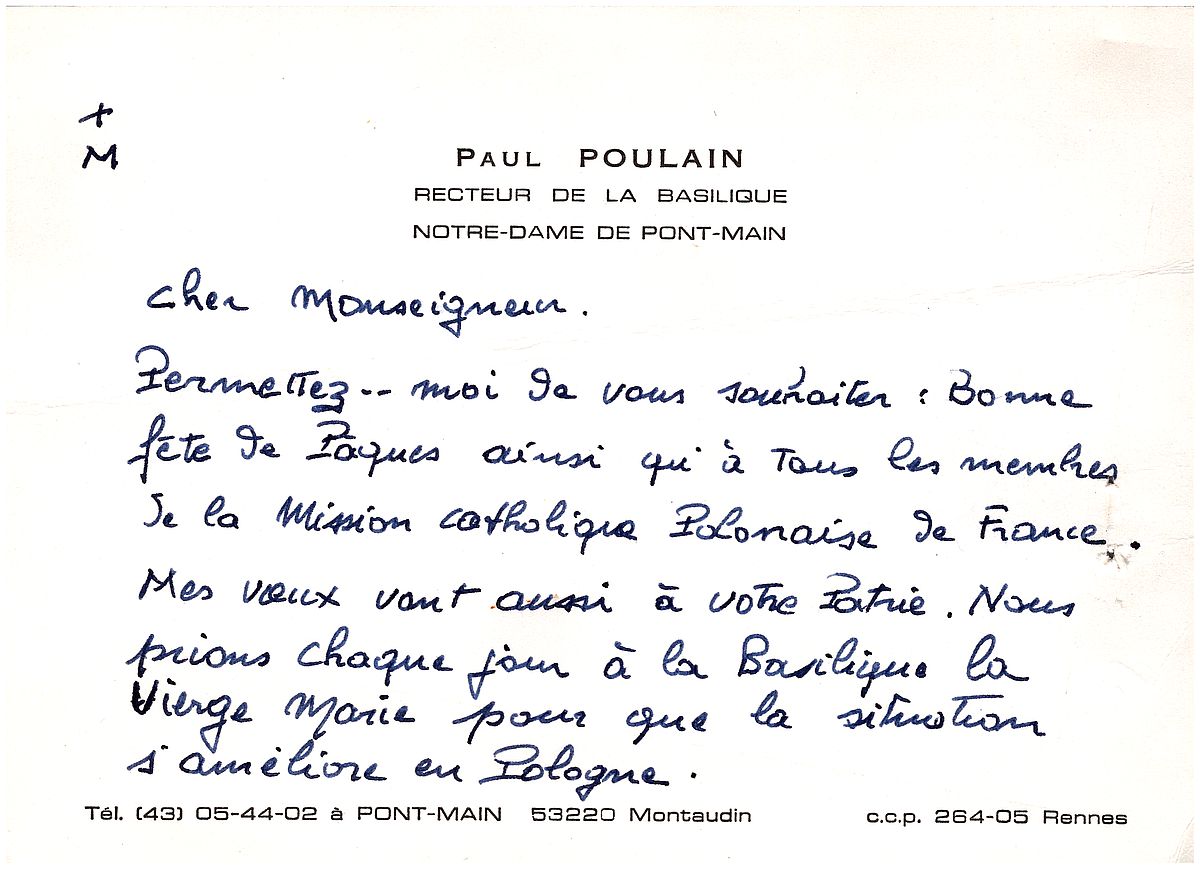 +
M
PAUL POULAIN
RECTEUR DE LA BASILIQUE
NOTRE-DAME DE PONT-MAIN
Cher Monseigneur.
Permettez-- moi de vous souhaiter : Bonne
fête de Pâques ainsi qu'à tous les membres
de la Mission catholique Polonaise de France.
Mes vœux vont aussi à votre Patrie. Nous
prions chaque jour à la Basilique la
Vierge Marie pour que la situation
s'améliore en Pologne.
Tél. (43) 05-44-02 à PONT-MAIN 53220 Montaudin c.c.p. 264-05 Rennes